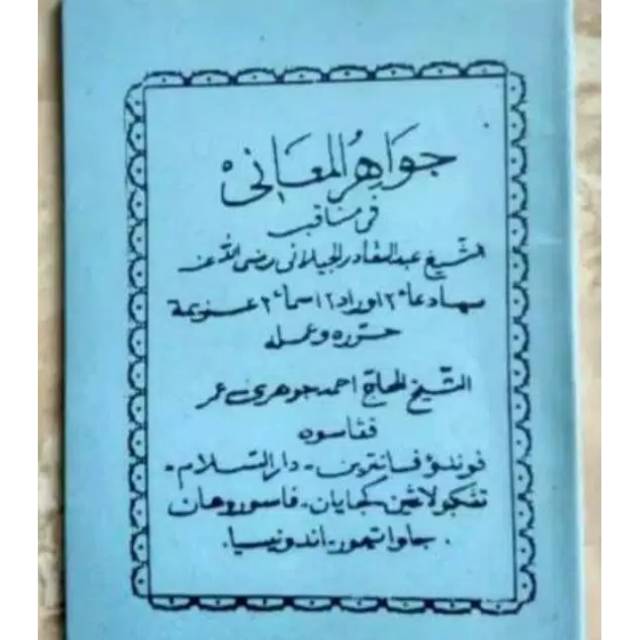 جواهر المعاني
في مناقب
الشيخ عبد القادر الجيلاني رضي الله عنه
سهادعا٢ اوراد٢ اسما٢ عزيمة
حرره وعمله
الشيخ الحاج احمد جوهري عمر
ڤڠاسوه
ڤوندؤ ڤسانترين - دار السلام -
تڠكولاڠين كجايان - ڤاسوروهان
جاوا تيمور - اندونيسيا .